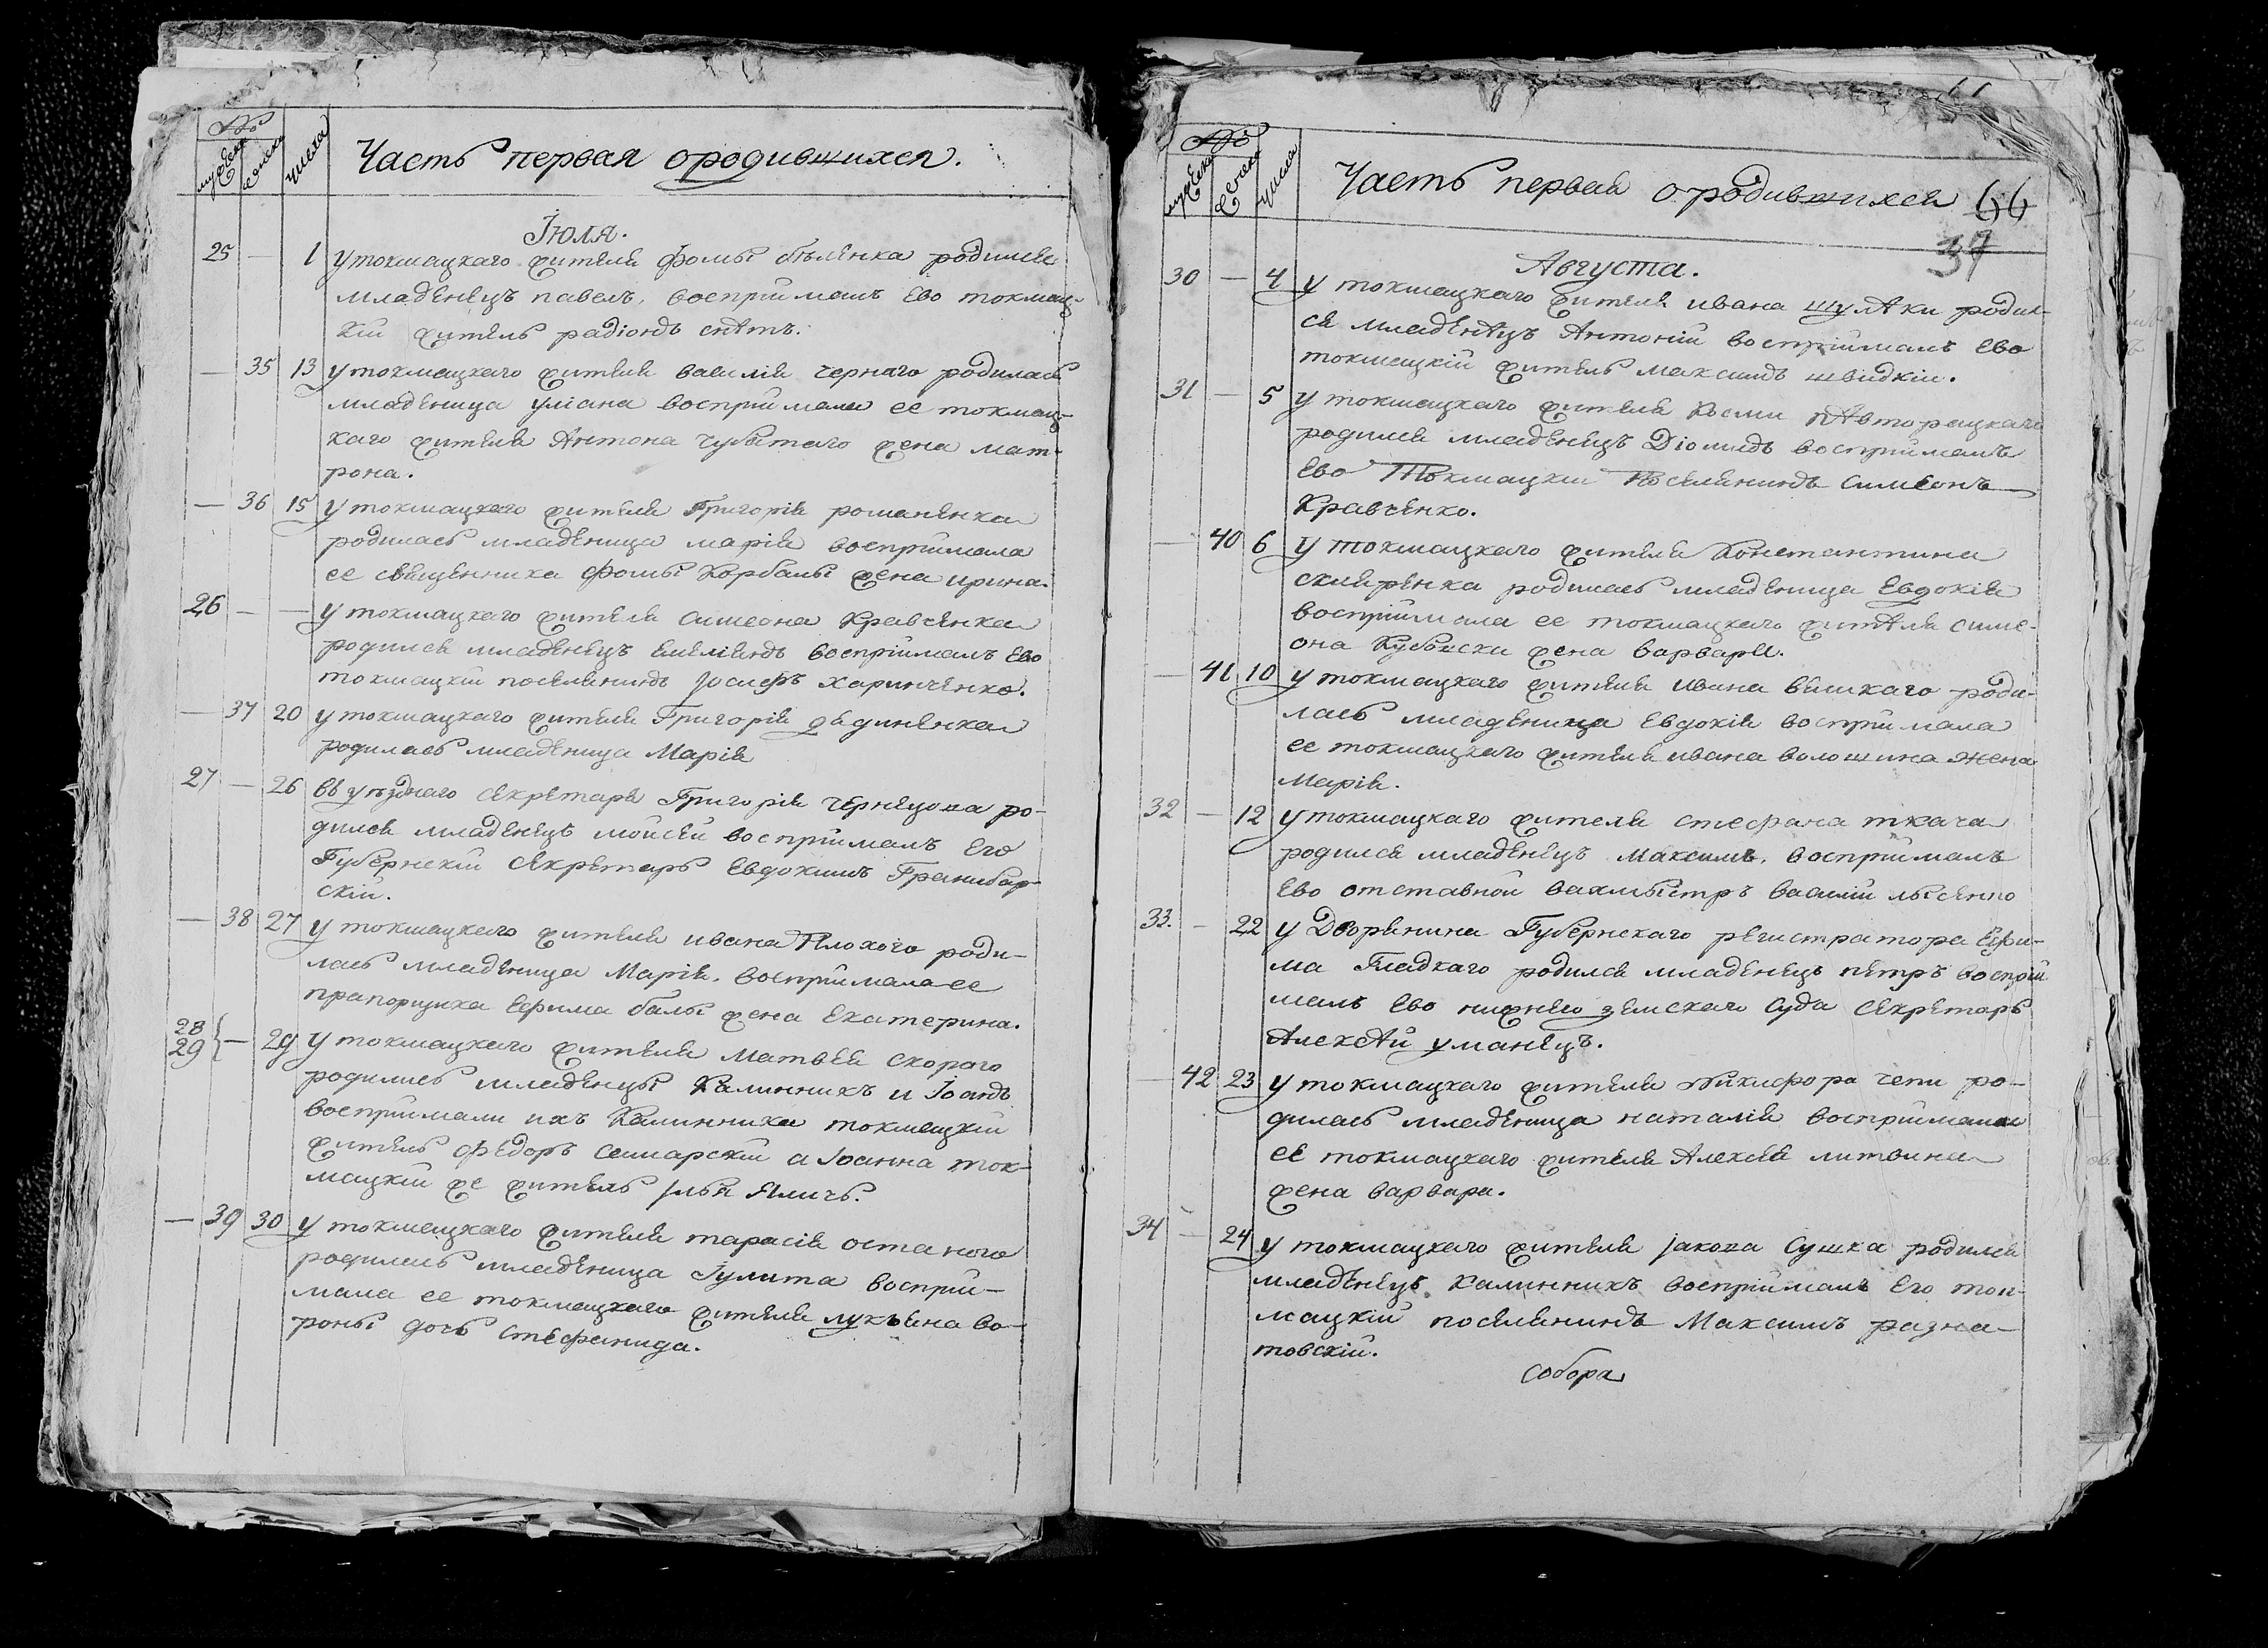 №
мужеска
женска
числа
Часть первая ородившихся.
Іюля.
25 — 1 У токмацкаго жителя фомы белѣнка родился
младенецъ павелъ, воспріималъ ево токмац-
кій житель радіонъ
— 35 13 У токмацкаго жителя василія чернаго родилась
младеница уліана воспріимала ее токмац-
каго жителя Антона чубатаго жена мат-
рона.
— 36 15 У токмацкаго жителя Григорія романенка
родилась младеница марія воспріимала
ее священника фомы Корбалы жена ирина.
26 — — У токмацкаго жителя симеона Кравченка
родился младенецъ емеліянъ воспріималъ ево
токмацкій поселянинъ іосифъ харинченко.
— 37 20 У токмацкаго жителя Григорія дядиненка
родилась младеница Марія
27 — 26 въ уѣзднаго секретаря Григорія чернецова ро-
дился младенецъ мойсей воспріималъ его
Губернскій секретарь Евдокимъ Гранибар-
скій.
— 38 27 У токмацкаго жителя ивана Плохого роди-
лась младеница Марія. воспріимала ее
прапорщика Ефима балы жена Екатерина.
28
29 — 29 У токмацкаго жителя матвея скораго
родились младенцы Калинникъ и Іоанъ
воспріимали ихъ Калинника токмацкій
житель федоръ самарскій а Іоанна ток-
мацкій же житель
— 39 30 У токмацкаго жителя тарасія остапого
родилась младеница Іулита воспріи-
мала ее токмацкаго жителя лукьяна во-
роны дочь стефанида.
№
мужеска
женска
числа
Часть первая ородившихся 66
37
Августа.
30 — 4 У токмацкаго жителя ивана шуляки родил-
ся младенецъ Антоній воспріималъ ево
токмацкій житель максимъ швидкій.
31 — 5 У токмацкаго жителя Косми
родился младенецъ Діомидъ воспріималъ
ево Токмацкій Поселянинъ симеонъ
Кравченко.
— 40 6 У токмацкаго жителя Константина
скляренка родилась младеница Евдокія
воспріимала ее токмацкаго жителя симе-
она жена варвара.
— 41 10 У токмацкаго жителя ивана великаго роди-
лась младеница Евдокія воспріимала
ее токмацкаго жителя ивана волошина жена
Марія.
32 — 12 У токмацкаго жителя стефана ткача
родился младенецъ максимъ, воспріималъ
ево отставной вахмистръ василій лысенко
33. — 22 У Дворянина Губернскаго регистратора Ефи-
ма Гладкаго родился младенецъ петръ воспріи
малъ ево нижнего земскаго суда секретарь
Алексѣй уманецъ.
— 42 23 У токмацкаго жителя никифора чепи ро-
дилась младеница наталія воспріимала
ее токмацкаго жителя Алексея литвина
жена варвара.
34 — 24 У токмацкаго жителя іакова Сушка родился
младенецъ калинникъ воспріималъ его ток-
мацкій поселянинъ Максимъ разна-
товскій.
собора